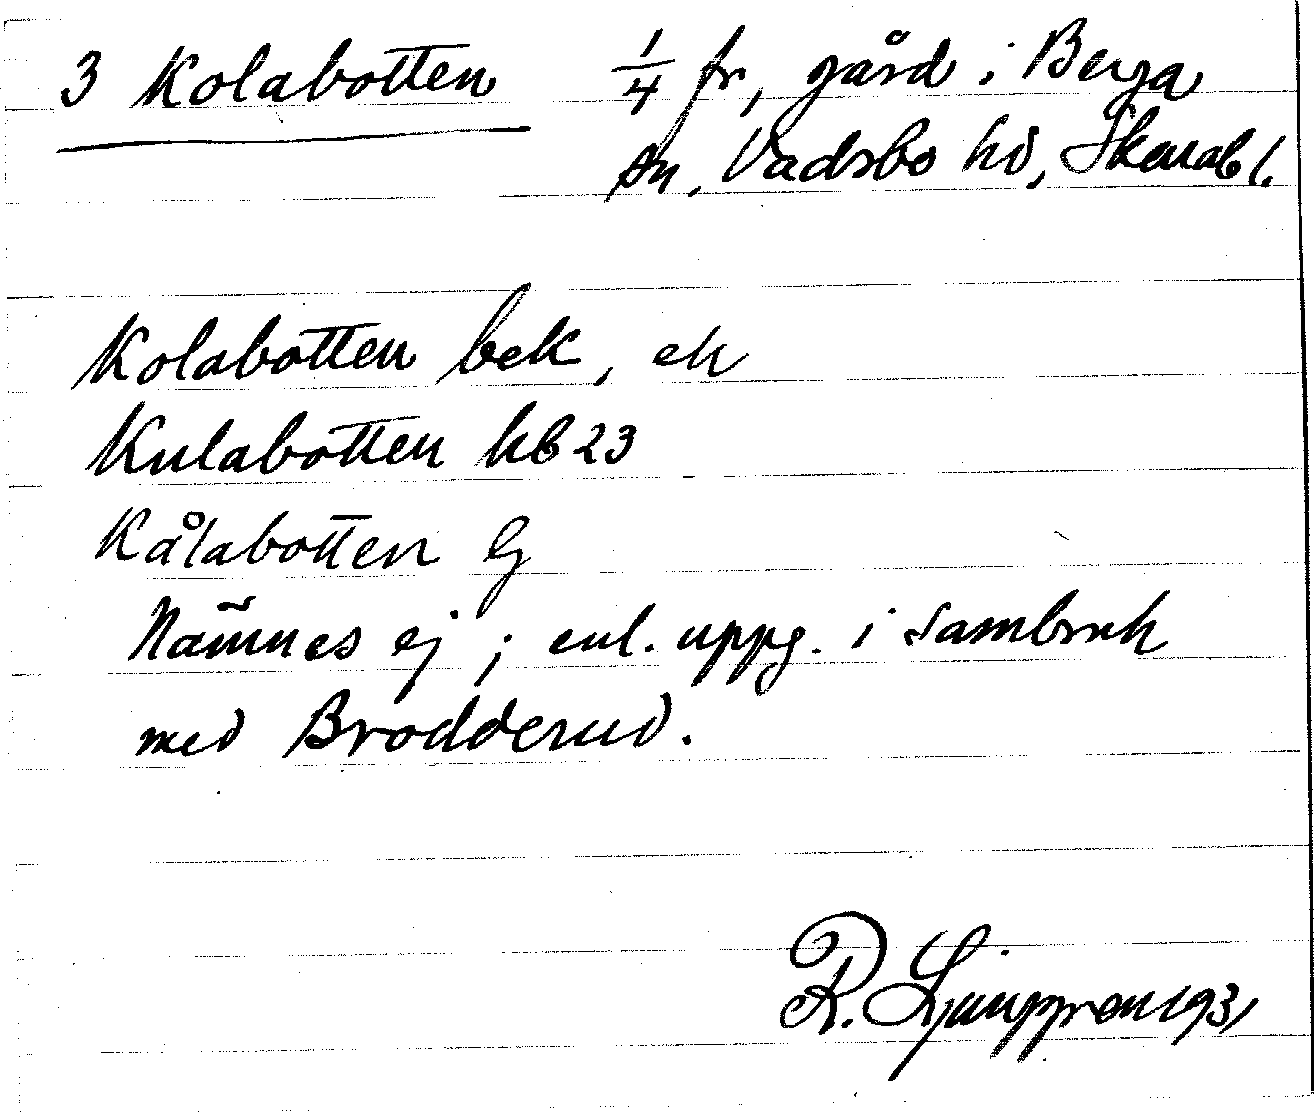 3 Kolabotten 1/4 fr, gård i Berga
sn, Vadsbo hd, Skarab l.
Kolabotten bek, ek
Kulabotten kb 23
Kålabotten G
Nämnes ej ; enl. uppg. i sambruk
med Brodderud.
R. Ljunggren 1931